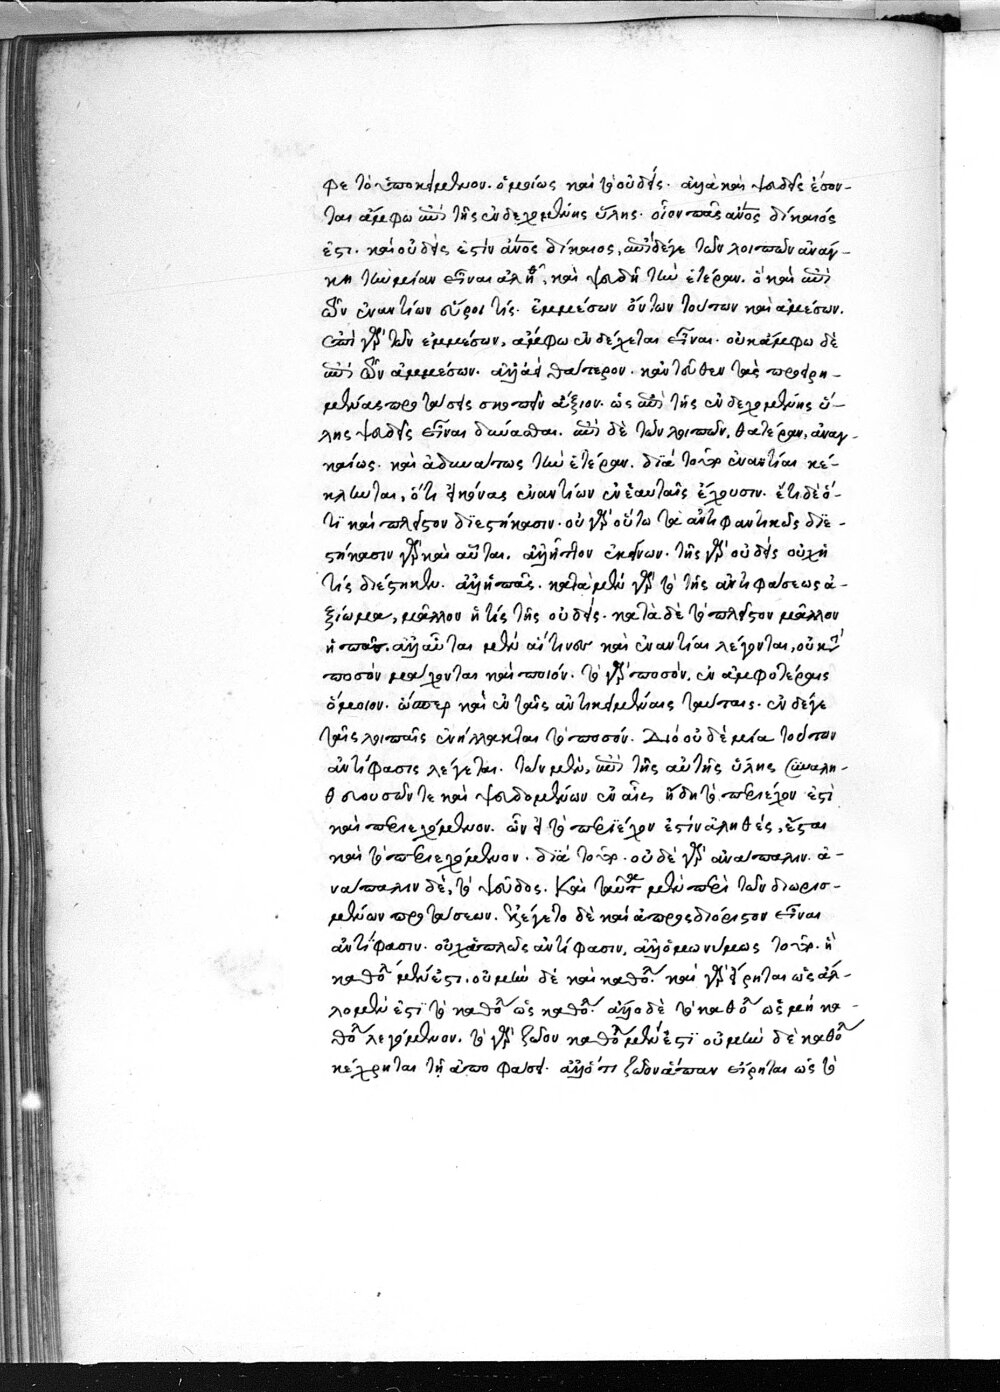 φε τὸ ὑποκείμενον. ὁμοίως καὶ τὸ οὐδείς. ἀλλὰ καὶ ψευδεῖς ἔσον-
ται ἄμφω ἐπὶ τῆς ἐνδεχομένης ὕλης. οἷον πᾶς ἄνος δίκαιός
ἐστι. καὶ οὐδείς ἐστιν ἄνος δίκαιος, ἐπὶ δέ γε τῶν λοιπῶν ἀνάγ-
κη τὴν μίαν εἶναι ἀληθῆ, καὶ ψευδῆ τὴν ἑτέραν. ὃ καὶ ἐπὶ
τῶν ἐναντίων εὕροι τίς. ἐμμέσων ὄντων τούτων καὶ ἀμέσων.
ἐπὶ γὰρ τῶν ἐμμέσων, ἄμφω ἐνδέχεται εἶναι. οὐκ ἄμφω δὲ
ἐπὶ τῶν ἀμμέσων. ἀλλ' ἀεὶ θάτερον. κἀντεῦθεν τὰς προειρη-
μένας προτάσεις σκοπεῖν ἄξιον. ὡς ἐπὶ τῆς ἐνδεχομένης ὕ-
λης ψευδεῖς εἶναι δύνασθαι. ἐπὶ δὲ τῶν λοιπῶν, θατέραν, ἀναγ-
καίως. καὶ ἀδυνάτως τὴν ἑτέραν. διὰ τοῦτο ἐναντίαι κέ-
κληνται, ὅτι εἰκόνας ἐναντίων ἐν ἑαυταῖς ἔχουσιν. ἔτι δὲ ὅ-
τι καὶ πλεῖστον διεστήκασιν. οὐ γὰρ οὕτω τὰ ἀντιφαντικῶς διε-
στήκασιν γὰρ καὶ αὗται. ἀλλ' ἧττον ἐκείνων. τῆς γὰρ οὐδεὶς οὐχ ἡ
τίς διέστηκεν. ἀλλ' ἡ πᾶς. κατὰ μὲν γὰρ τὸ τῆς ἀντιφάσεως ἀ-
ξίωμα, μᾶλλον ἡ τίς τῆς οὐδείς. κατὰ δὲ τὸ πλεῖστον μᾶλλον
ἡ πᾶς. ἀλλ' αὗται μὲν αἵτινες καὶ ἐναντίαι λέγονται, οὐ κατὰ
ποσὸν μάχονται καὶ ποιόν. τὸ γὰρ ποσὸν, ἐν ἀμφοτέραις
ὅμοιον. ὥσπερ καὶ ἐν ταῖς ἀντικειμέναις ταύταις. ἐν δέ γε
ταῖς λοιπαῖς ἐνήλλακται τὸ ποσόν. Διὸ οὐδὲ μία τούτων
ἀντίφασις λέγεται. τῶν μὲν, ἐπὶ τῆς αὐτῆς ὕλης συναλη-
θευουσῶν τε καὶ ψευδομένων ἐν αἷς ἤδη τὸ περιέχον ἐστὶ
καὶ περιεχόμενον. ὧν εἰ τὸ περιέχον ἐστὶν ἀληθές, ἔσται
καὶ τὸ περιεχόμενον. διὰ τοῦτο. οὐδὲ γὰρ ἀνάπαλιν. ἀ-
νάπαλιν δὲ, τὸ ψεῦδος. Καὶ ταῦτα μὲν περὶ τῶν διωρισ-
μένων προτάσεων. Ἐλέγετο δὲ καὶ ἀπροςδιόριστον εἶναι
ἀντίφασιν. οὐχ ἁπλῶς ἀντίφασιν, ἀλλ' ὁμωνύμως τοῦτο. ἢ
καθό μέν ἐστι. οὐ μὴν δὲ καὶ καθό. καὶ γὰρ εἴρηται ὡς ἄλ-
λο μέν ἐστι τὸ καθό ὡς καθό. ἄλλο δὲ τὸ καθό ὡς μὴ κα-
θό λεγόμενον. τὸ γὰρ ζῶον καθό μέν ἐστι οὐ μὴν δὲ καθό
κέχρηται τῇ ἀποφάσει. ἀλλ' ὅτι ζῶον ἅπαν εἴρηται ὡς τὸ